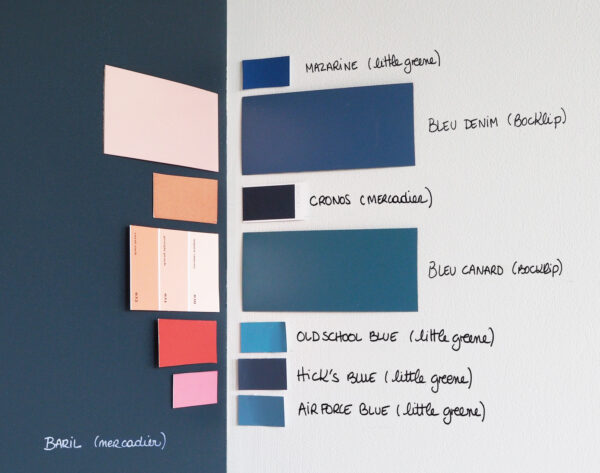 MAZARINE (little greene)
BLEU DENIM (Bocklip)
CRONOS (MERCADIER)
BLEU CANARD (BOCKLIP)
OLD SCHOOL BLUE (little greene)
HICK'S BLUE (little greene)
AIR FORCE BLUE (little greene)
BARIL (mercadier)